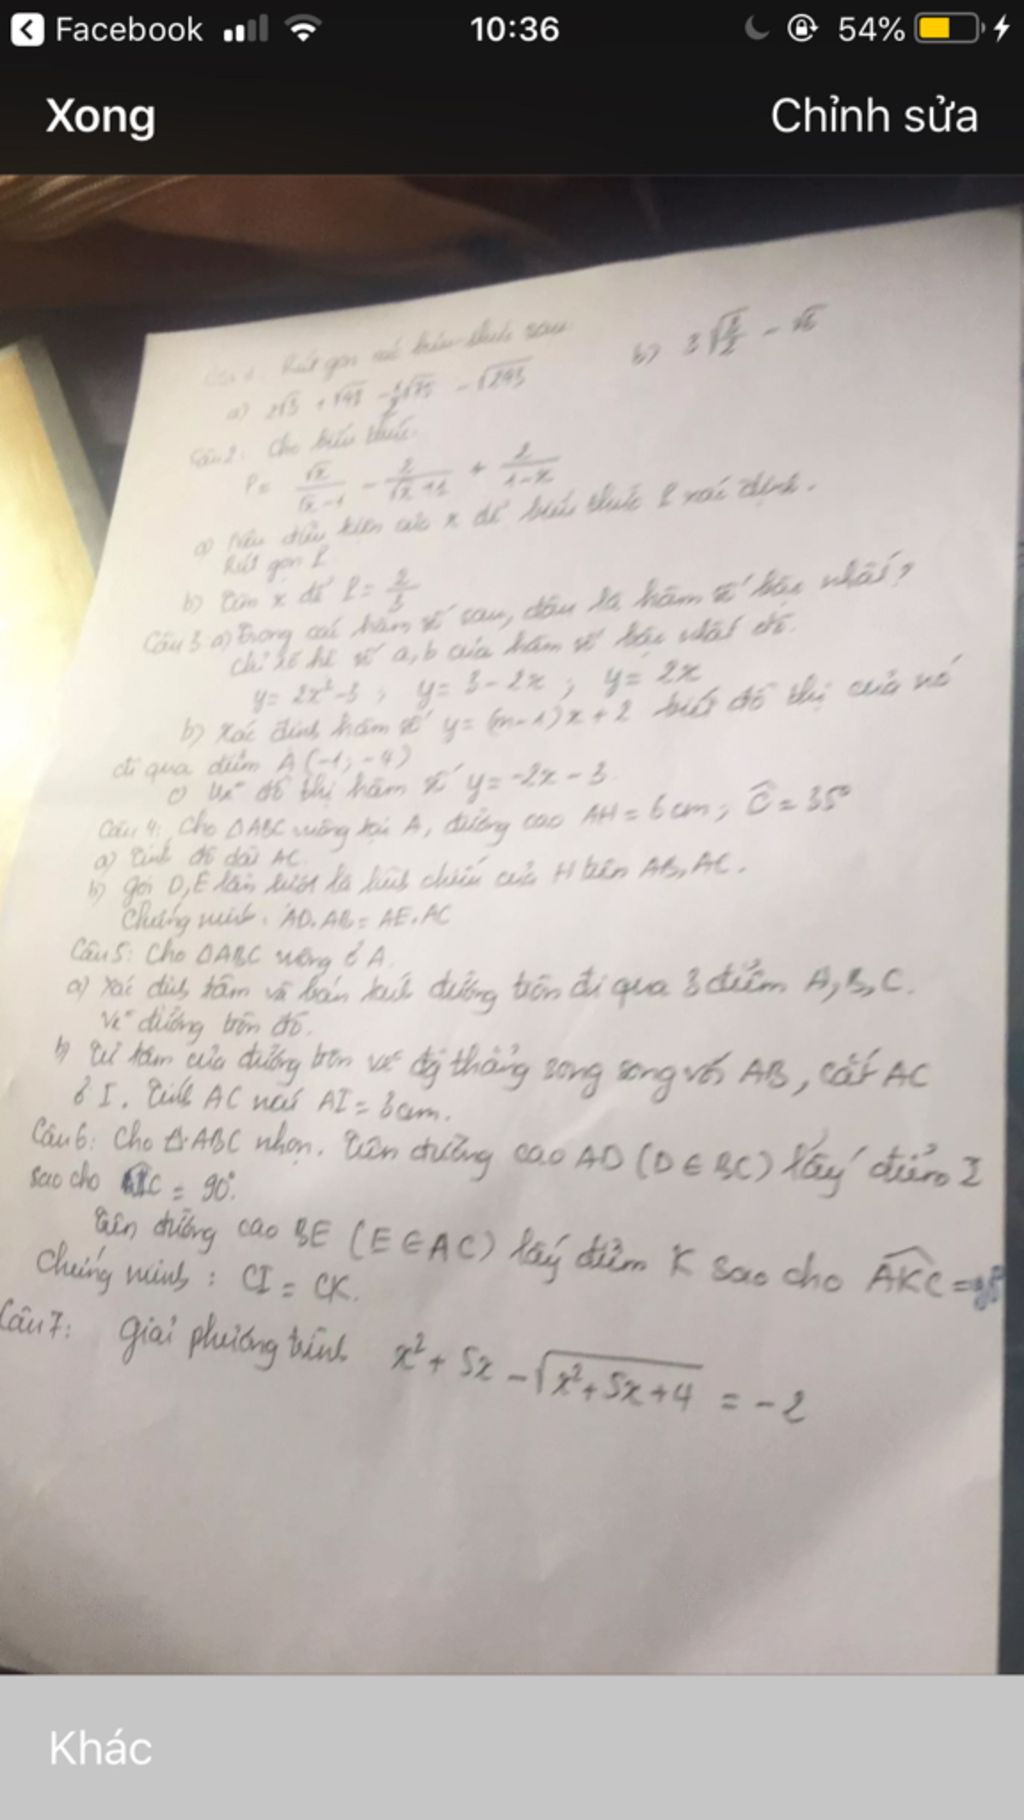 Facebook 10:36 54%
Xong Chỉnh sửa
Rút gọn biểu thức sau
a) 2√3 + √48 - √75 - √243 b) 3 - √6
Câu 2: Cho biểu thức
P = √x/(√x-1) - 2/(√x+1) + 2/(1-x)
a) Nêu điều kiện của x để biểu thức P xác định.
Rút gọn P
b) Tìm x để P =
Câu 3 a) Trong các hàm số sau, đâu là hàm số bậc nhất?
chỉ rõ hệ số a, b của hàm số bậc nhất đó.
y = 2x² - 3 ; y = 3 - 2x ; y = 2x
b) Xác định hàm số y = (m-1)x + 2 biết đồ thị của nó
đi qua điểm A(-1; -4)
c) Vẽ đồ thị hàm số y = -2x - 3
Câu 4: Cho ΔABC vuông tại A, đường cao AH = 6cm, Ĉ = 35°
a) Tính độ dài AC.
b) gọi D, E lần lượt là hình chiếu của H trên AB, AC.
Chứng minh: AD.AB = AE.AC
Câu 5: Cho ΔABC vuông ở A.
a) Xác định tâm và bán kính đường tròn đi qua 3 điểm A, B, C.
Vẽ đường tròn đó.
b) Từ tâm của đường tròn vẽ đg thẳng song song với AB, cắt AC
ở I. Tính AC AI = 3cm.
Câu 6: Cho ΔABC nhọn. Trên đường cao AD (D ∈ BC) lấy điểm I
sao cho = 90°.
Trên đường cao BE (E ∈ AC) lấy điểm K sao cho AKC =
Chứng minh: CI = CK.
Câu 7: Giải phương trình x² + 5x - √(x² + 5x + 4) = -2
Khác